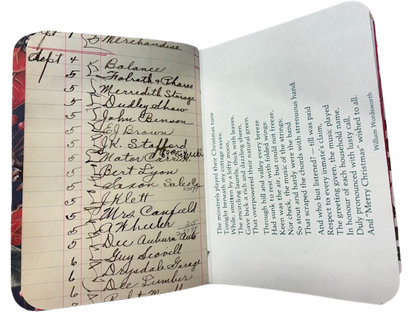 Sept 1 Merchandise
Sept 4 Balance
5 & Phares
5 Merredith Storage
5 Dudley Shaw
5 John Benson
5 EJ Brown
5 J.K. Stafford
5 Water
5 Bert Lyon
5 Saxon Sales
5 J Klett
5 Mrs Canfield
5 A Wheeler
5 Dee Auburn Auto
6 Guy Scovell
6 Drysdale Garage
6 Dee Lumber
The minstrels played their Christmas tune
Tonight beneath my cottage eaves;
While, smitten by a lofty moon,
The encircling laurels, thick with leaves,
Gave back a rich and dazzling sheen,
That overpowered their natural green.
Through hill and valley every breeze
Had sunk to rest with folded wings:
Keen was the air, but could not freeze,
Nor check, the music of the strings;
So stout and hardy were the band
That scraped the chords with strenuous hand.
And who but listened? - till was paid
Respect to every inmate's claim,
The greeting given, the music played
In honour of each household name,
Duly pronounced with lusty call,
And "Merry Christmas" wished to all.
William Wordsworth